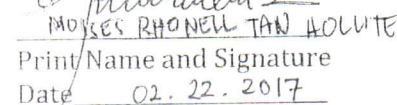 MOISES RHONELL TAN HOLLITE
Print Name and Signature
Date 02.22.2017